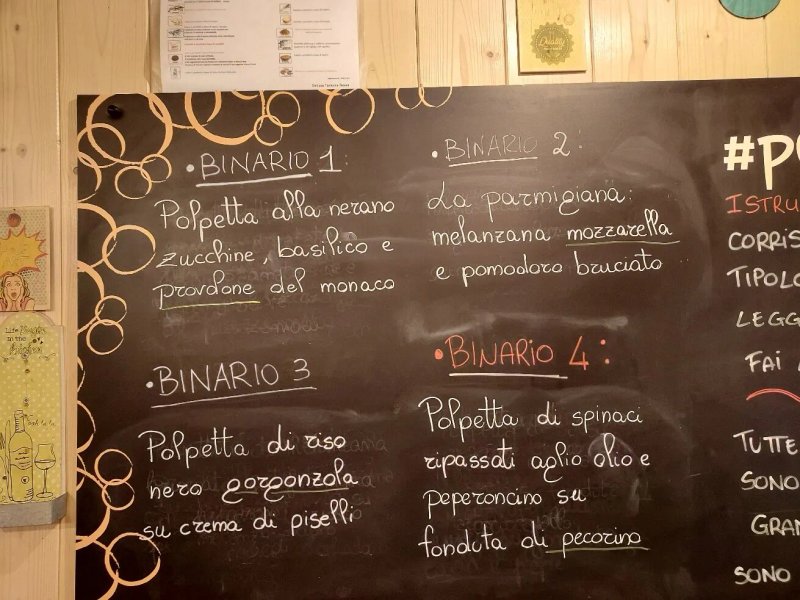 • BINARIO 1:
Polpetta alla nerano
zucchine, basilico e
provolone del monaco
• BINARIO 2:
La parmigiana:
melanzana mozzarella
e pomodoro bruciato
• BINARIO 3
Polpetta di riso
nero gorgonzola
su crema di piselli
• BINARIO 4:
Polpetta di spinaci
ripassati aglio olio e
peperoncino su
fonduta di pecorino
#P
ISTRU
CORRIS
TIPOLO
LEGG
FAI
TUTTE
SONO
GRAN
SONO
Life
in the